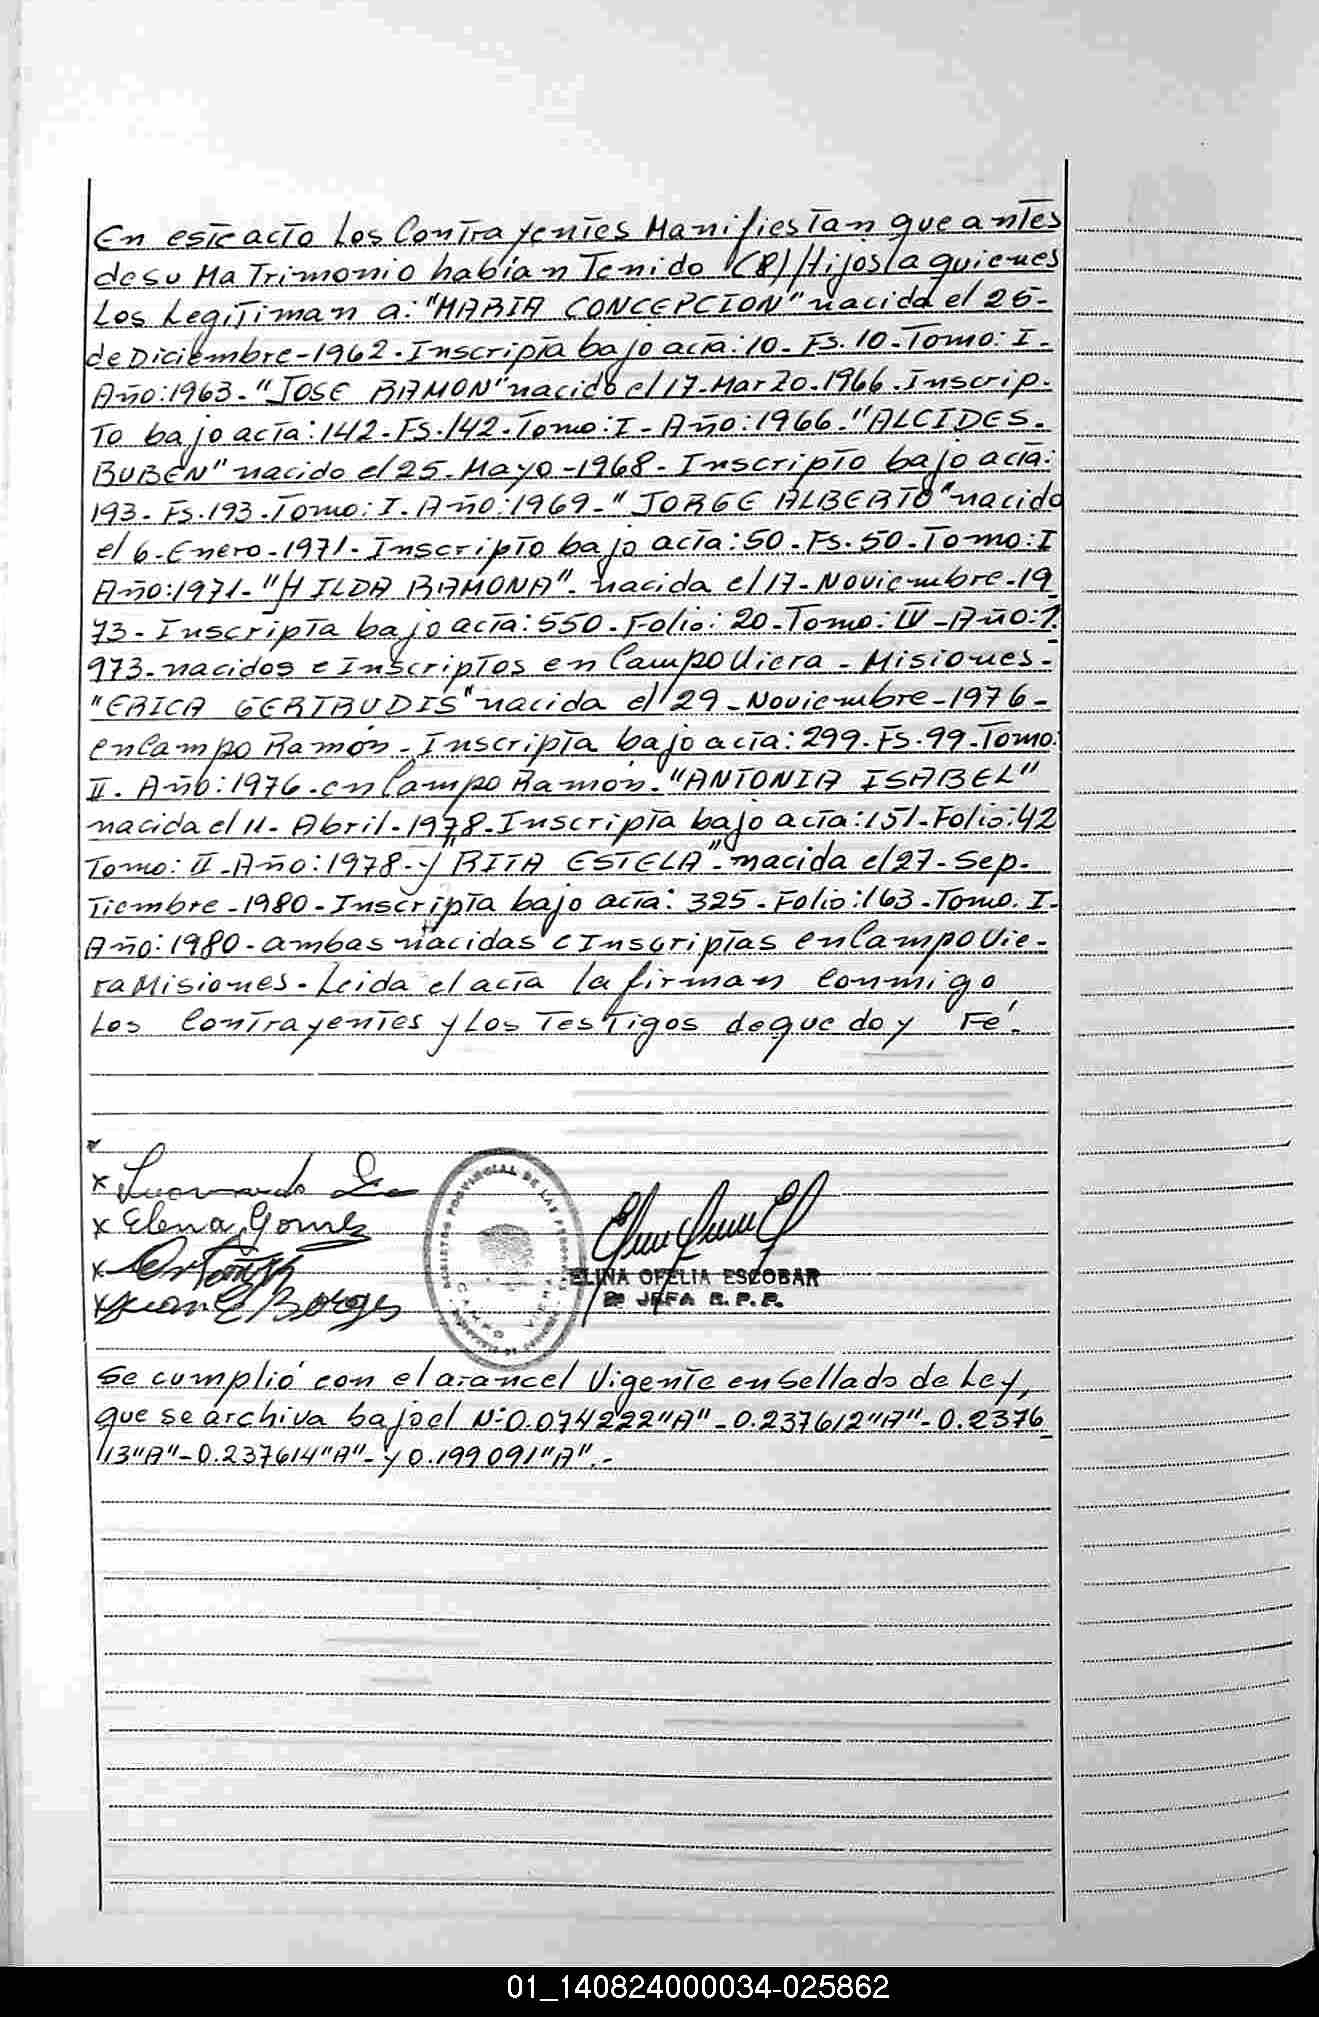 En este acto Los Contrayentes Manifiestan que antes
de su Matrimonio habían Tenido (8) Hijos a quienes
Los Legitiman a: "MARIA CONCEPCION" nacida el 26-
de Diciembre-1962. Inscripta bajo acta: 10- Fs. 10-Tomo: I.
Año: 1963- "JOSE RAMON" nacido el 17-Marzo-1966. Inscrip-
to bajo acta: 142- Fs. 142- Tomo: I- Año: 1966- "ALCIDES.
RUBEN" nacido el 25-Mayo-1968- Inscripto bajo acta:
193- Fs. 193- Tomo: I. Año: 1969- "JORGE ALBERTO" nacido
el 6-Enero-1971- Inscripto bajo acta: 50- Fs. 50- Tomo: I
Año: 1971- "HILDA RAMONA"- nacida el 17-Noviembre-19
73- Inscripta bajo acta: 550- Folio: 20-Tomo: IV- Año: 1.
973- nacidos e Inscriptos en Campo Viera- Misiones-
"ERICA GERTRUDIS" nacida el 29-Noviembre-1976-
en Campo Ramón- Inscripta bajo acta: 299- Fs. 99-Tomo:
II. Año: 1976- en Campo Ramón. "ANTONIA ISABEL"
nacida el 11-Abril-1978- Inscripta bajo acta: 151- Folio: 42
Tomo: II- Año: 1978- y "RITA ESTELA"- nacida el 27-Sep-
tiembre-1980- Inscripta bajo acta: 325- Folio: 163- Tomo. I-
Año: 1980- ambas nacidas e Inscriptas en Campo Vie-
ra Misiones- Leida el acta la firman conmigo
Los Contrayentes y Los Testigos de que doy Fé.
x Leonardo
x Elena Gomez
x
x Juan C Borges
REGISTRO PROVINCIAL DE LAS PERSONAS
CAMPO VIERA
ELINA OFELIA ESCOBAR
JEFA R.P.P.
Se cumplió con el arancel Vigente en Sellado de Ley,
que se archiva bajo el Nº: 0.074222"A"- 0.237612"A"- 0.2376
13"A"- 0.237614"A"- y 0.199091"A".-
01_140824000034-025862